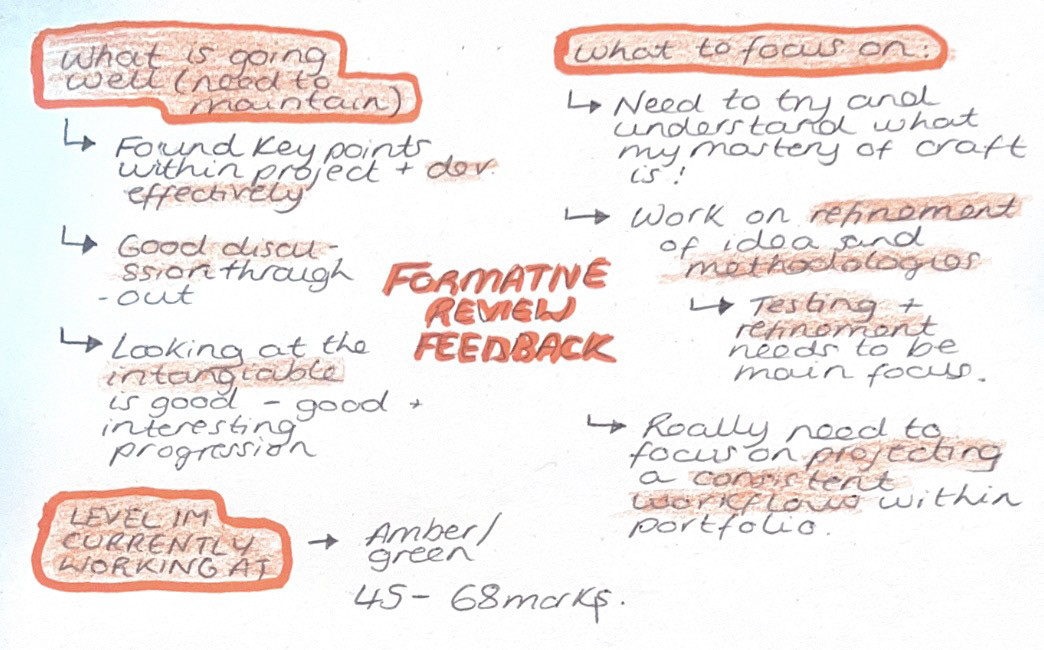 What is going
well (need to
maintain)
Found key points
within project + dev.
effectively
Good discu-
ssion through
-out
Looking at the
intangiable
is good - good +
interesting
progression
FORMATIVE
REVIEW
FEEDBACK
LEVEL IM
CURRENTLY
WORKING AT
Amber/
green
45 - 68 marks.
What to focus on:
Need to try and
understand what
my mastery of craft
is!
Work on refinement
of idea and
methodologies
Testing +
refinement
needs to be
main focus.
Really need to
focus on projecting
a consistent
workflow within
portfolio.